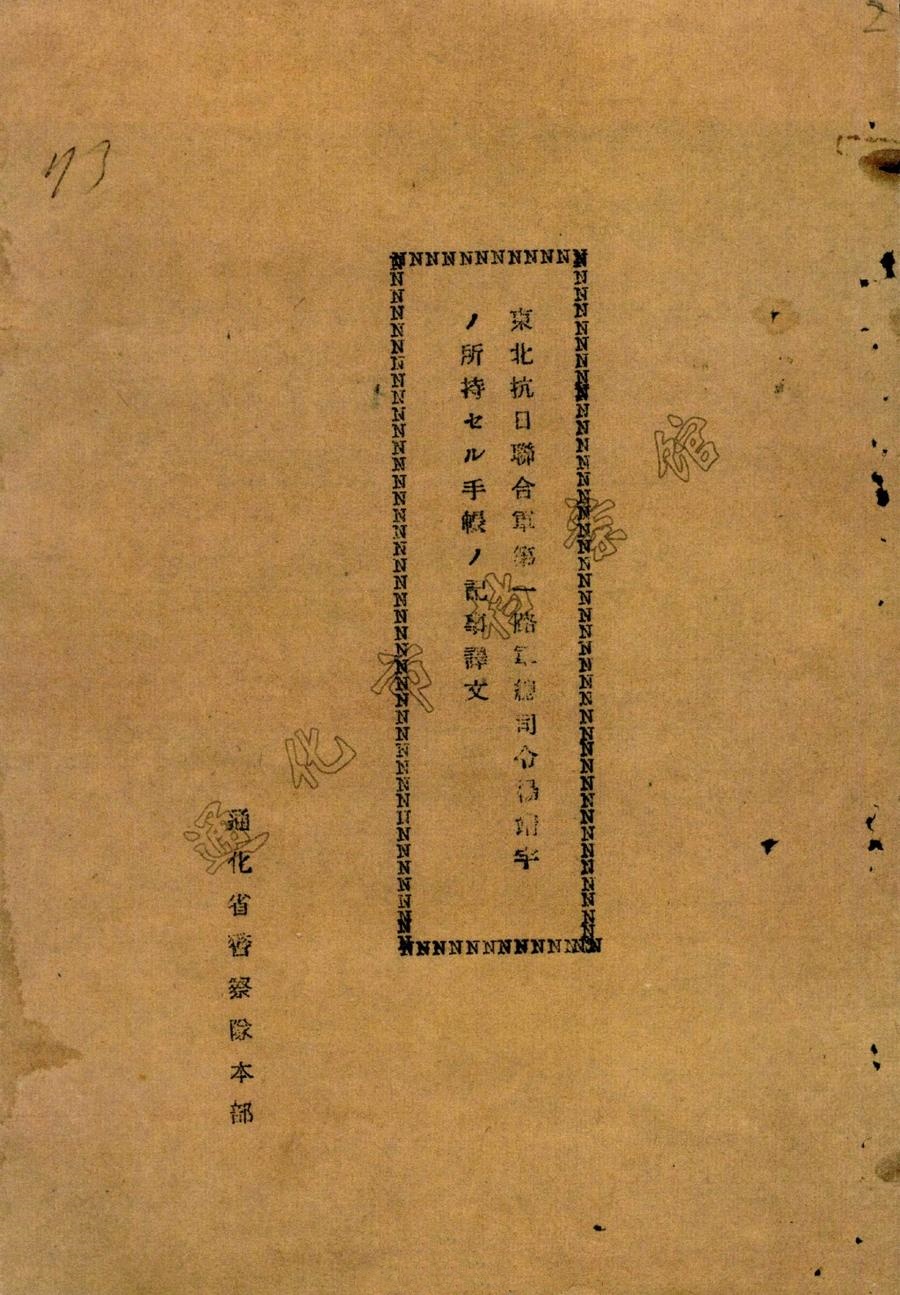 2
73
NNNNNNNNNNNN
東北抗日聯合軍第一路軍總司令楊靖宇
ノ所持セル手帳ノ記事譯文
通化省警察隊本部
通化市档案馆